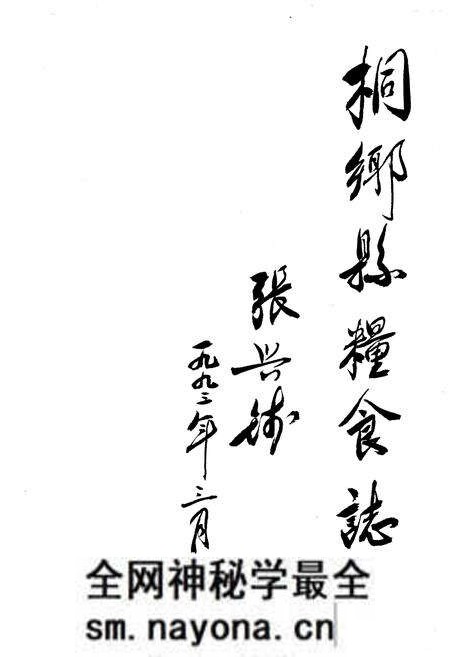 桐鄉縣糧食誌
張兴
一九九二年三月
全网神秘学最全
sm.nayona.cn